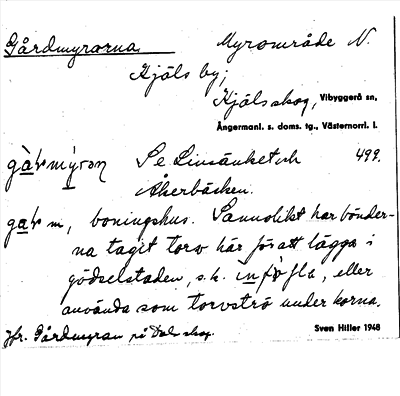 Gårdmyrarna Myrområde N.
Kjäls by,
Kjälsskog, Vibyggerå sn,
Ångermanl. s. doms. tg., Västernorrl. l.
Se Linsänket och 499.
Åkerbäcken.
m, boningshus. Sannolikt har bönder-
na tagit torv här för att lägga i
gödselstaden, s.k. eller
använda som torvströ under korna.
Jfr. Gårdmyran på Dals skog.
Sven Hiller 1948